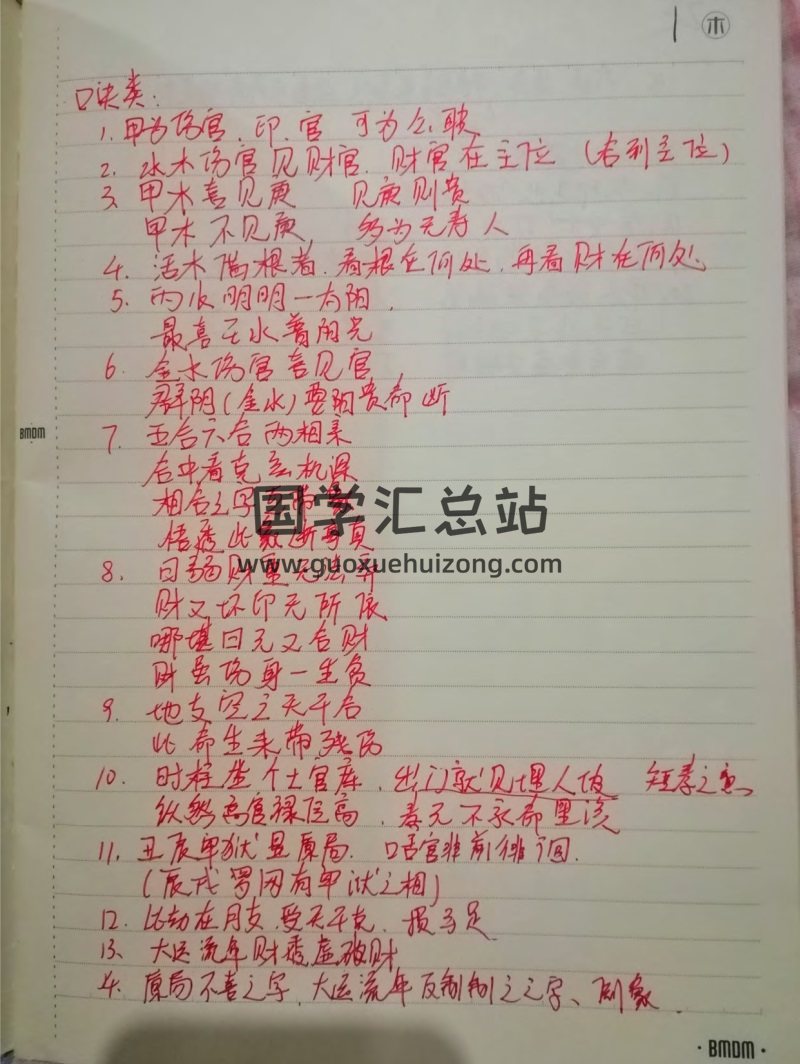 1 木
口诀类:
1. 甲为伤官、印、官 可为公职
2. 水木伤官见财官、财官在主位（右到主位）
3. 甲木喜见庚 见庚则贵
甲木不见庚, 多为无寿人
4. 活木 根者, 看根在何处, 再看财在何处
5. 丙火明明一太阳,
最喜壬水 阳光
6. 金水伤官喜见官
阴(金水)要 贵 断
7. 五合六合两相亲
合中看克玄机深
相合之字
国学汇总站
悟透此 断 真
www.guoxuehuizong.com
8. 日弱财重无
财又坏印无所依
哪堪日元又合财
财 伤身一生负
9. 地支空之天干合
此命生来带残伤
10. 时柱坐个土官库, 出门就见埋人坡 短寿之意
纵然高官禄位高, 寿元不永命里浅
11. 丑辰甲狱显原局. 官非前徘徊.
(辰戌罗网有甲狱之相)
12. 比劫在月支, 受天干克, 损手足
13. 大运流年财透虚破财
4. 原局不喜之字, 大运流年反制制之之字、 象
BMDM
· BMDM ·